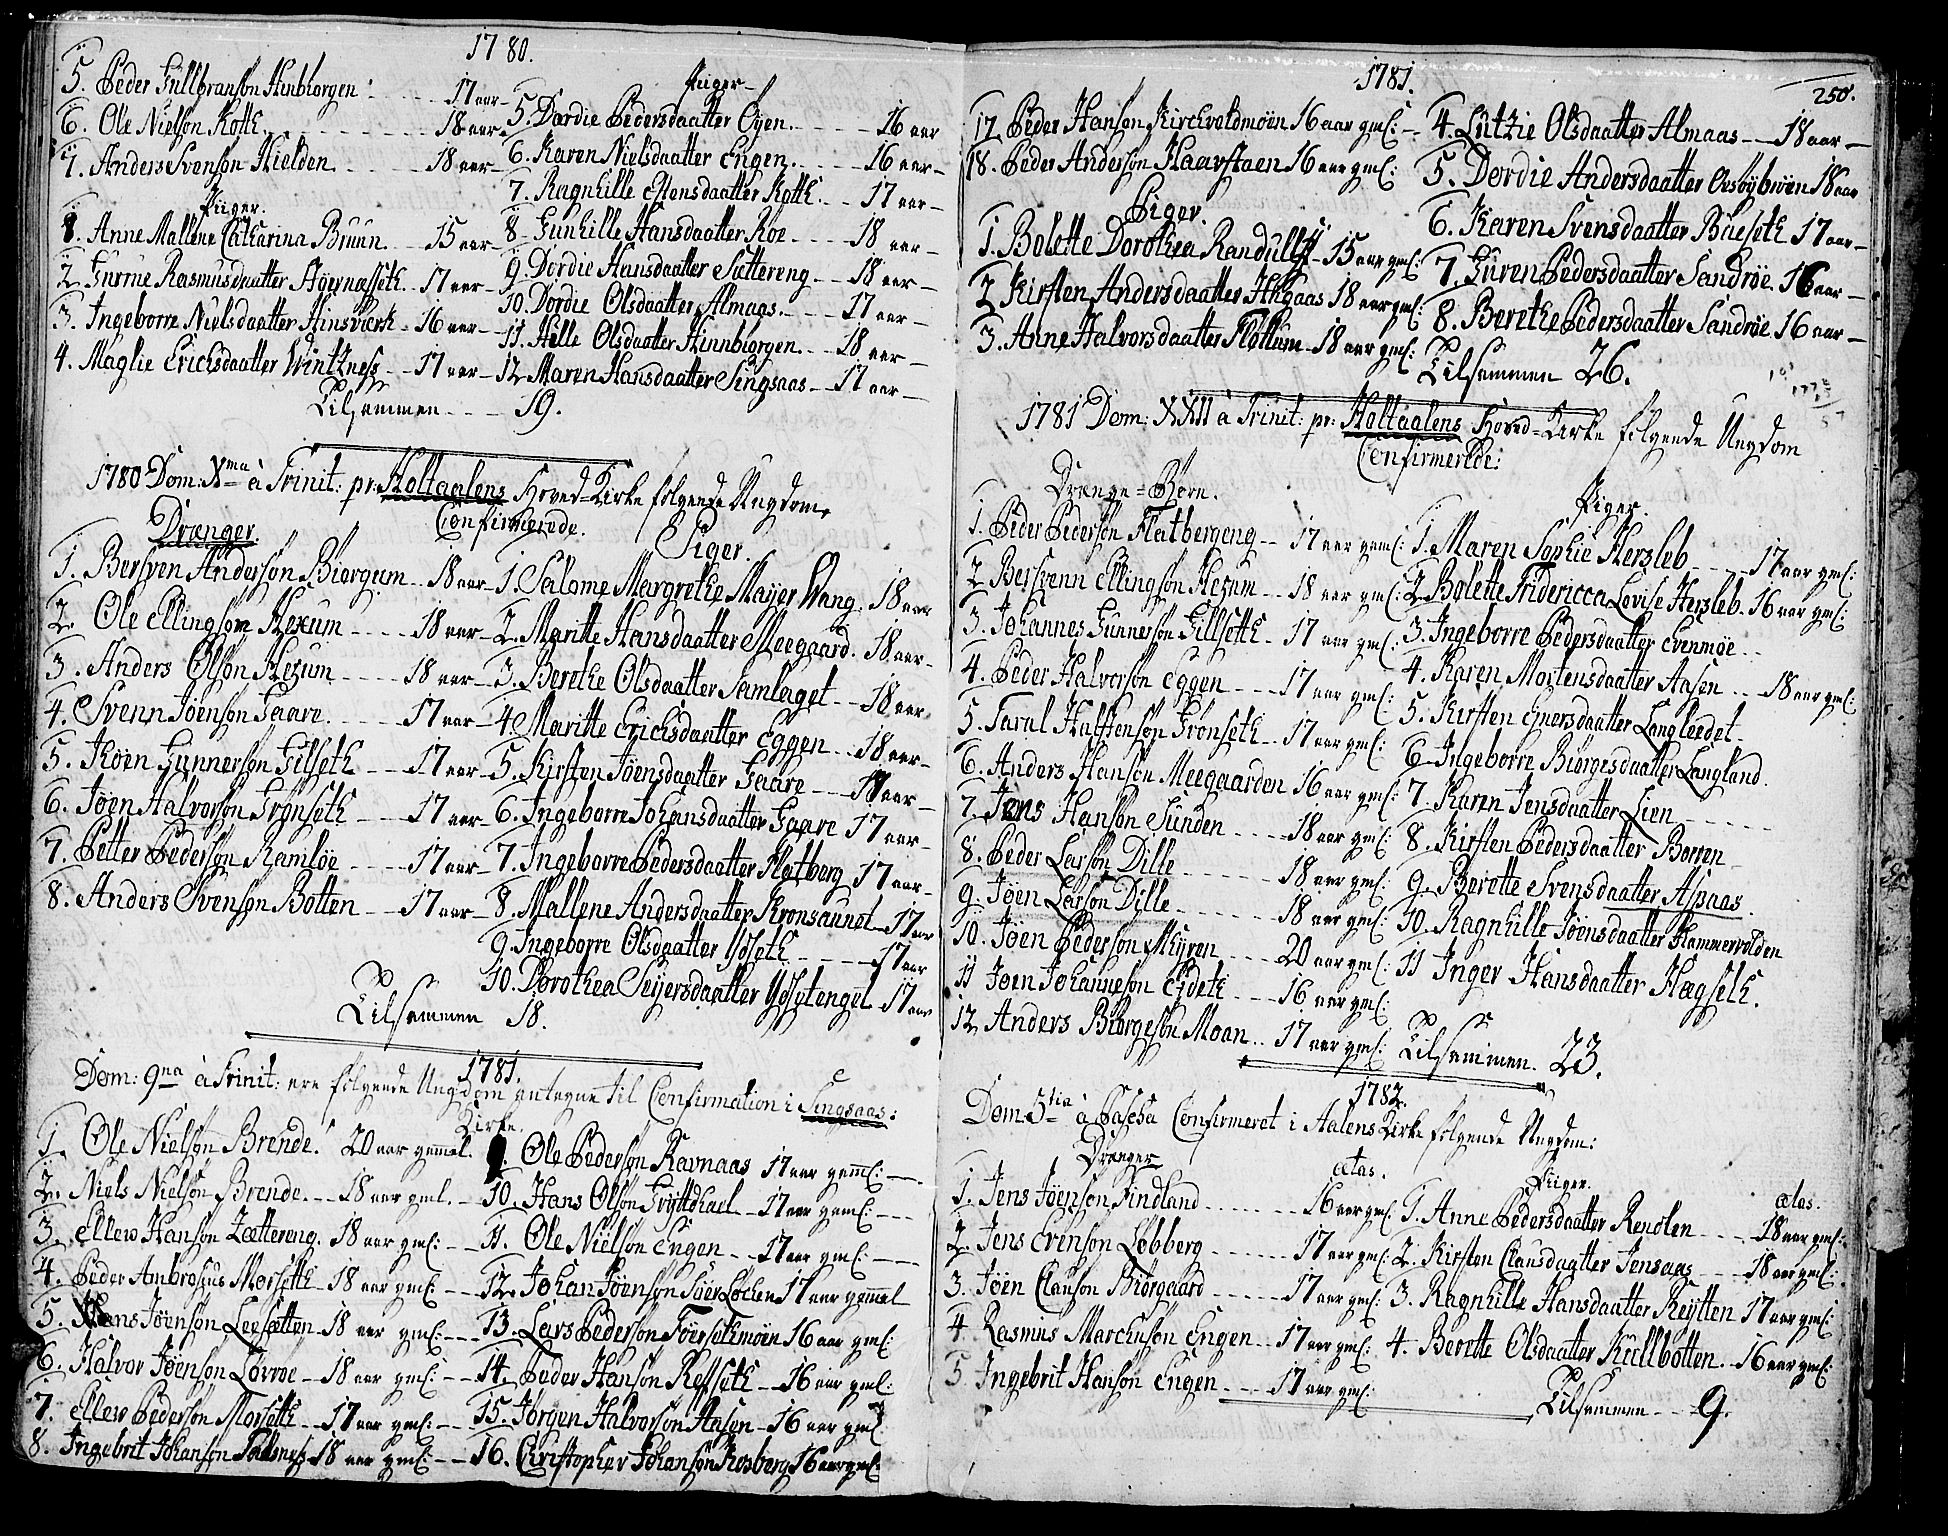 1780.
5. Peder Gullbranson Hinbiorgen 17 aar
6. Ole Nielson Kotth 18 aar
7. Anders Svenson Hielden 18 aar
Piiger.
1. Anne Mallene Catharina Bruun 15 aar
2. Gurrue Rasmusdaatter 17 aar
3. Ingeborre Nielsdaatter Hinsværk 16 aar
4. Maglie Erichsdaatter Wintzness 17 aar
Piiger
5. Dordie Pedersdaatter Øyen 16 aar
6. Karen Nielsdaatter Engen 16 aar
7. Ragnhille Monsdaatter Kotth 17 aar
8. Gunhille Hansdaatter Roe 18 aar
9. Dordie Hansdaatter Sættereng 18 aar
10. Dordie Olsdaatter Almaas 17 aar
11. Hille Olsdaatter Hinnbiorgen 18 aar
12. Maren Hansdaatter Singsaas 17 aar
Tilsammen 19.
1780 Dom: Xma à Trinit: pr: Holtaalens Hoved-Kirke følgende Ungdom
Confirmerede.
Drænger.
1. Bersven Anderson Biorgum 18 aar
2. Ole Ellingsøn Hexum 18 aar
3. Anders Olson Hexum 18 aar
4. Svenn Jøenson Gaare 17 aar
5. Køen Gunnerson Gilseth 17 aar
6. Jøen Halvorson Grønseth 17 aar
7. Petter Pederson Ramløe 17 aar
8. Anders Svenson Botten 17 aar
Piger.
1. Salome Margrethe Maijer Wang 18 aar
2. Maritte Hansdaatter Meegaard 18 aar
3. Berethe Olsdaatter Samlaget 18 aar
4. Maritte Erichsdaatter Eggen 18 aar
5. Kirsten Jøensdaatter Gaare aar
6. Ingeborre Johansdaatter Gaare 17 aar
7. Ingeborre Pedersdaatter Flatberg 17 aar
8. Mallene Andersdaatter Kronsaunet 17 aar
9. Ingeborre Olsdaatter 17 aar
10. Dorothea Seijersdaatter 17 aar
Tilsammen 18.
1781.
Dom: 9na à Trinit: ere følgende Ungdom antegne til Confirmation i Singsaas:
Kirke.
1. Ole Nielsøn Brende 20 aar gammel.
2. Niels Nielsøn Brende 18 aar gml.
3. Ellew Hanson Zættereng 18 aar gml:
4. Peder Ambrosius Morseth 18 aar gml:
5. Hans Jøenson Leesætten 18 aar gml:
6. Halvor Jøenson Lovroe 18 aar gml:
7. Ellew Pederson Morseth 17 aar gml:
8. Ingebrit Johanson 18 aar gml:
9. Ole Pederson Ravnaas 17 aar gaml:
10. Hans Olson 17 aar gml:
11. Ole Nielson Engen 17 aar gml:
12. Johan Jøenson 17 aar gammel
13. Lars Pederson Forsethmoen 16 aar gml:
14. Peder Hanson Refseth 16 aar gml:
15. Jørgen Halvorson Ansen 16 aar gml:
16. Christopher Johanson Kosberg 16 aar gml:
1781.
250.
17. Peder Hanson Kirchvoldmøen 16 aar gml:
18. Peder Anderson Haavstaen 16 aar gml:
Piger.
1. Bolette Dorothea Randulff 15 aar gml:
2. Kirsten Andersdaatter 18 aar gml:
3. Anne Halvorsdaatter Flottum 18 aar gml:
4. Lutzie Olsdaatter Almaas 18 aar
5. Dordie Andersdaatter 18 aar
6. Karen Svensdaatter Bueseth 17 aar
7. Guren Pedersdaatter Sandrøe 16 aar
8. Berethe Pedersdaatter Sandrøe 16 aar
Tilsammen 26.
1781 Dom: XXII à Trinit: pr: Holtaalens Hoved-Kirke følgende Ungdom
Confirmerede:
Drænge-Børn.
1. Peder Pederson Flatbergeng 17 aar gml:
2. Bersvenn Ellingson Hexum 18 aar gml:
3. Johannes Gunnerson Gillseth 17 aar gml:
4. Peder Halvorson Eggen 17 aar gml:
5. Taral Halffenson Grønseth 17 aar gml:
6. Anders Hanson Meegaarden 16 aar gml:
7. Jens Hanson Sunden 18 aar gml:
8. Peder Larson Dille 18 aar gml:
9. Jøen Larson Dille 18 aar gml:
10. Jøen Pederson Myren 20 aar gml:
11. Jøen Johanneson Eideth 16 aar gml:
12. Anders Biørgeson Moan 17 aar gml:
Piger.
1. Maren Sophie Hersleb 17 aar gml:
2. Bolette Fridericca Lovise Hersleb 16 aar gml:
3. Ingeborre Pedersdaatter Evenmøe
4. Karen Mortensdaatter Aasen 18 aar gml:
5. Kirsten Enersdaatter Langleedet
6. Ingeborre Biørgesdaatter Langland.
7. Karen Jensdaatter Lien
8. Kirsten Pedersdaatter Borren
9. Berette Svensdaatter Aspaas.
10. Ragnhille Jøensdaatter Hammervolden
11. Inger Hansdaatter Hægseth.
Tilsammen. 23.
1782.
Dom. 3tia à Pascha Confirmeret i Aalens Kirke følgende Ungdom:
Drænger
ætas.
1. Jens Jøenson Findland 16 aar gml:
2. Jens Evenson Løbberg 17 aar gml:
3. Jøen Clauson Biørgaard 17 aar gml:
4. Rasmus Marchuson Engen 17 aar gml:
5. Ingebrit Hanson Engen 17 aar gml:
Piiger.
ætas.
1. Anne Pedersdaatter Renolen 18 aar gml:
2. Kirsten Clausdaatter Jensaas 18 aar gml:
3. Ragnhille Hansdaatter Reytten 17 aar gml:
4. Berette Olsdaatter Kullbotten 16 aar gml:
Tilsammen 9.